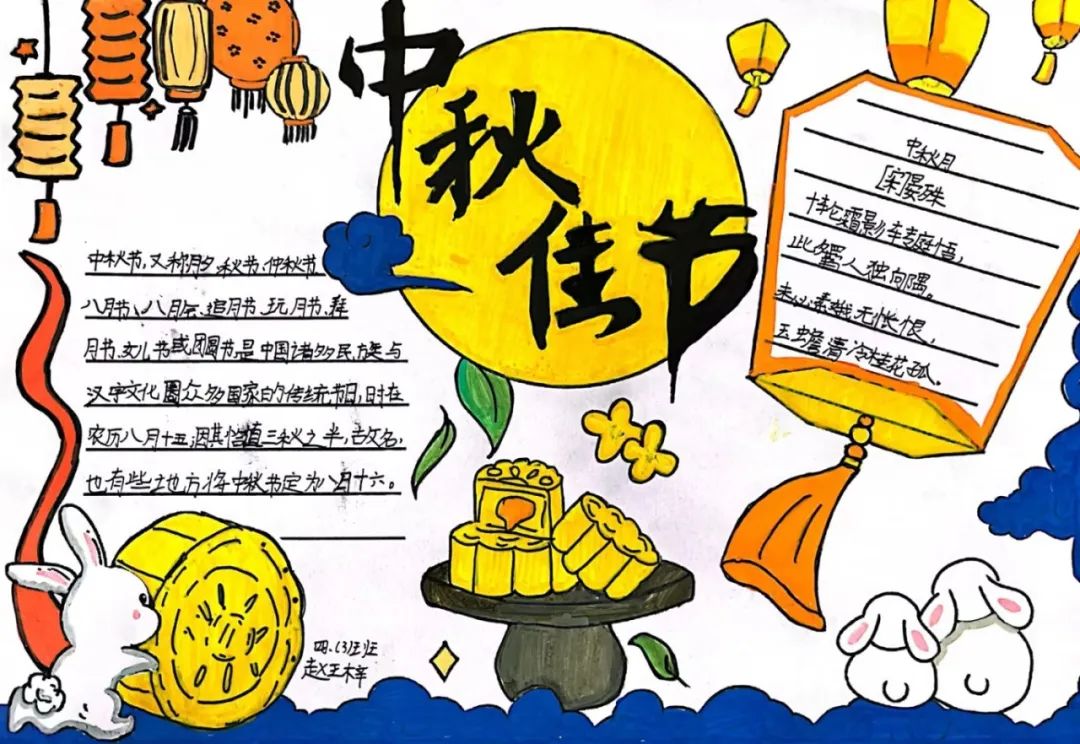 中秋佳节
中秋节,又称月夕、秋节、仲秋节
八月节、八月会、追月节、玩月节、拜
月节、女儿节或团圆节,是中国诸多民族与
汉字文化圈众多国家的传统节日,时在
农历八月十五;因其恰值三秋之半,故名,
也有些地方将中秋节定为八月十六。
中秋月
[宋]晏殊
十轮霜影转庭悟,
此夕羁人独向隅。
未必素娥无怅恨,
玉蟾清冷桂花孤。
四.(3)班
赵王梓